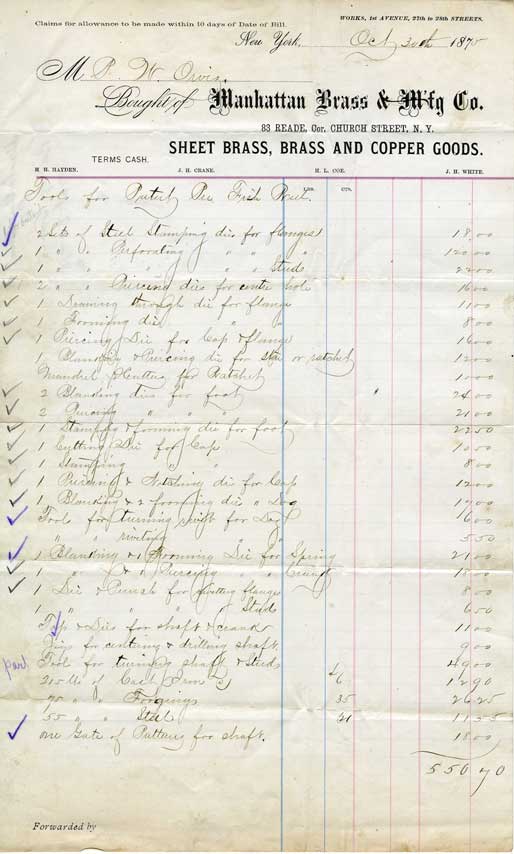 Claims for allowance to be made within 10 days of Date of Bill. WORKS, 1st AVENUE, 27th to 28th STREETS.
New York. Oct 30th 1875
M
Bought of Manhattan Brass & M'fg Co.
83 READE, Cor. CHURCH STREET, N. Y.
SHEET BRASS, BRASS AND COPPER GOODS.
TERMS CASH.
H. H. HAYDEN. J. H. CRANE. H. L. COE. J. H. WHITE.
LBS. CTS.
Tools for Patent Fish Reel.
2 Sets of Steel Stamping die for flanges 18.00
1 " " Perforating " " " 120.00
1 " " " " " Studs 22.00
2 " " Piercing dies for centre hole 16.00
1 Drawing through die for flange 11.00
1 Forming die " " 8.00
1 Piercing Die for Cap & flange 16.00
1 Blanking & Piercing die for or ratchet 12.00
Mandrel & Cutting for Ratchet
2 Blanking dies for foot 24.00
2 Piercing " " " 21.00
1 Stamping & forming die for foot 22.50
1 Cutting Die for Cap 10.50
1 Stamping " " " 8.00
1 Piercing & Notching die for Cap 12.00
1 Blanking & 2 forming die " Dog
Tools for turning for Dog 16.00
" " riveting " " 5.50
1 Blanking & 1 Forming Die for Spring 21.00
1 " & 1 Piercing " " Crank
1 Die & Punch for flanges 8.00
1 " " " " Studs 6.50
Taps & Dies for shaft & crank 11.00
Jigs for centering & drilling shaft. 9.00
part Tools for turning shaft & Studs 49.00
215 lbs of Cast Iron 6 12.90
75 " " Forgings 35 26.25
55 " " Steel 21 11.55
one Gate of Patterns for shaft. 18.00
550 70
Forwarded by